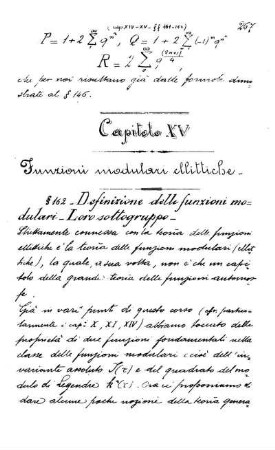 (cap. XIV-XV - §§ 161-162) 267
P = 1 + 2 Σ qⁿ², Q = 1 + 2 Σ (-1)ⁿ qⁿ²
R = 2 Σ q^((2n+1)²/4),
che per noi risultano già dalle formole dimo-
strate al § 146.
Capitolo XV
Funzioni modulari ellittiche.
§ 162 - Definizione delle funzioni mo-
dulari - Loro sottogruppo -
Strettamente connessa con la teoria delle funzioni
ellittiche è la teoria delle funzioni modulari (ellit-
tiche), la quale, a sua volta, non è che un capi-
tolo della grande teoria delle funzioni automor-
fe.
Già in vari punti di questo corso (cfr. partico-
larmente i capi X, XI, XIV) abbiamo toccato delle
proprietà di due funzioni fondamentali nella
classe delle funzioni modulari: cioè dell'in-
variante assoluto J(τ) e del quadrato del mo-
dulo di Legendre k²(τ). Ora ci proponiamo di
dare alcune poche nozioni della teoria genera-